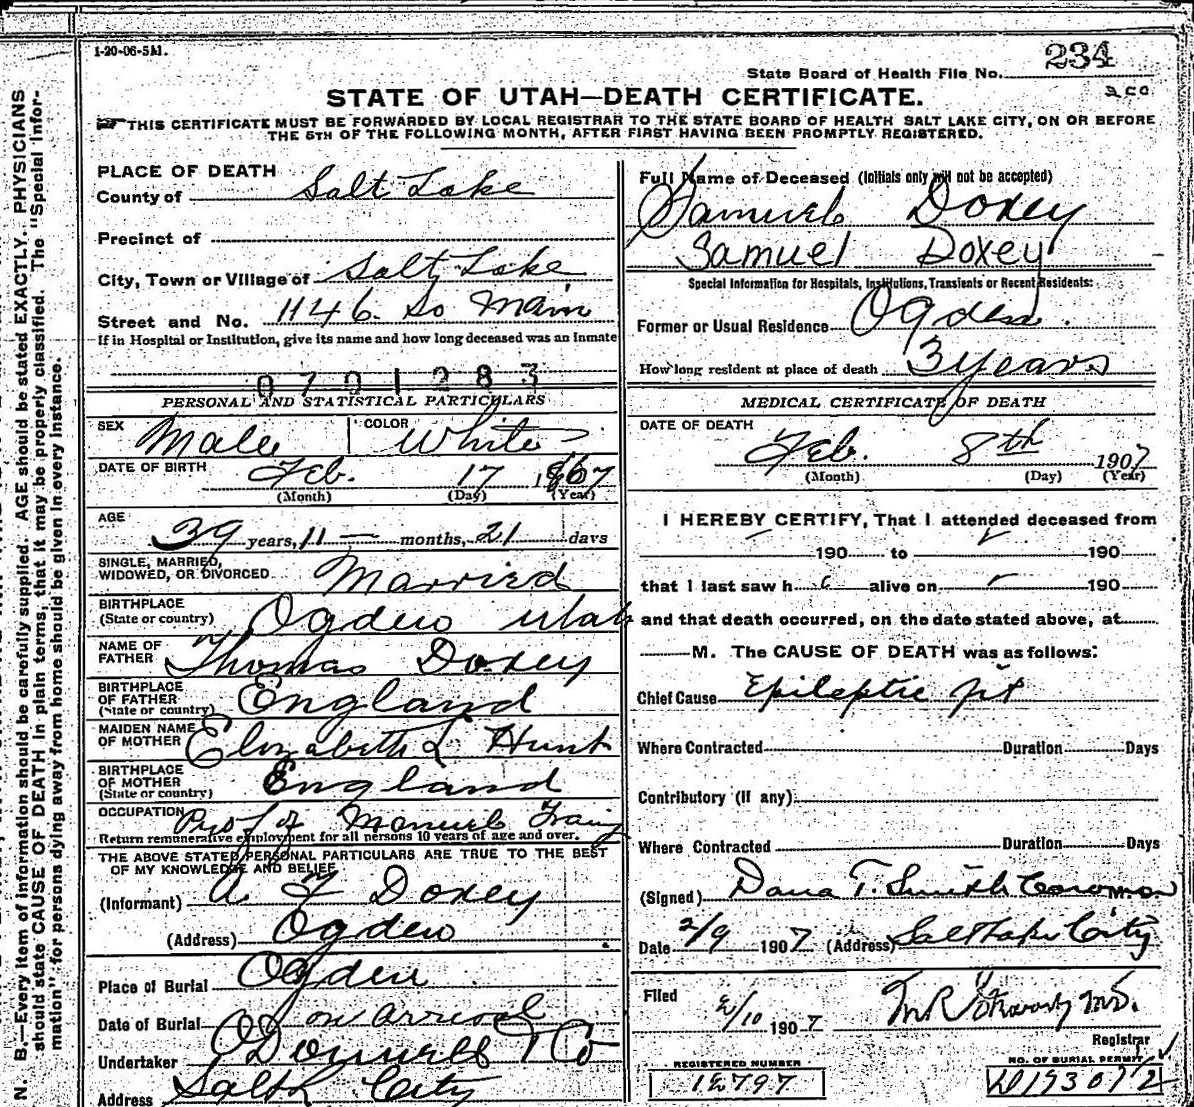 1-20-06-5M.
State Board of Health File No. 234
STATE OF UTAH—DEATH CERTIFICATE.
THIS CERTIFICATE MUST BE FORWARDED BY LOCAL REGISTRAR TO THE STATE BOARD OF HEALTH SALT LAKE CITY, ON OR BEFORE
THE 5TH OF THE FOLLOWING MONTH, AFTER FIRST HAVING BEEN PROMPTLY REGISTERED.
N. B.—Every item of information should be carefully supplied. AGE should be stated EXACTLY. PHYSICIANS
should state CAUSE OF DEATH in plain terms, that it may be properly classified. The "Special Infor-
mation" for persons dying away from home should be given in every instance.
PLACE OF DEATH
County of Salt Lake
Precinct of
City, Town or Village of Salt Lake
Street and No. 1146 So Main
If in Hospital or Institution, give its name and how long deceased was an Inmate
0701283
PERSONAL AND STATISTICAL PARTICULARS
SEX Male COLOR White
DATE OF BIRTH Feb. 17 1867
(Month) (Day) (Year)
AGE 39 years, 11 months, 21 days
SINGLE, MARRIED,
WIDOWED, OR DIVORCED Married
BIRTHPLACE
(State or country) Ogden Utah
NAME OF
FATHER Thomas Doxey
BIRTHPLACE
OF FATHER
(State or country) England
MAIDEN NAME
OF MOTHER Elizabeth L Hunt
BIRTHPLACE
OF MOTHER
(State or country) England
OCCUPATION Prof of Manuel Traing
Return remunerative employment for all persons 10 years of age and over.
THE ABOVE STATED PERSONAL PARTICULARS ARE TRUE TO THE BEST
OF MY KNOWLEDGE AND BELIEF
(Informant) A F Doxey
(Address) Ogden
Place of Burial Ogden
Date of Burial on arrival
Undertaker O'Donnell & Co
Address Salt L City
Full Name of Deceased (Initials only will not be accepted)
Samuel Doxey
Samuel Doxey
Special Information for Hospitals, Institutions, Transients or Recent Residents:
Former or Usual Residence Ogden.
How long resident at place of death 3 years
MEDICAL CERTIFICATE OF DEATH
DATE OF DEATH
Feb. 8th 1907
(Month) (Day) (Year)
I HEREBY CERTIFY, That I attended deceased from
190 to 190
that I last saw h alive on 190
and that death occurred, on the date stated above, at
M. The CAUSE OF DEATH was as follows:
Chief Cause Epileptic fit
Where Contracted Duration Days
Contributory (if any):
Where Contracted Duration Days
(Signed) Dana T. Smith Coroner M. D.
Date 2/9 1907 (Address) Salt Lake City
Filed 2/10 1907 M.D.
Registrar
REGISTERED NUMBER
NO. OF BURIAL PERMIT